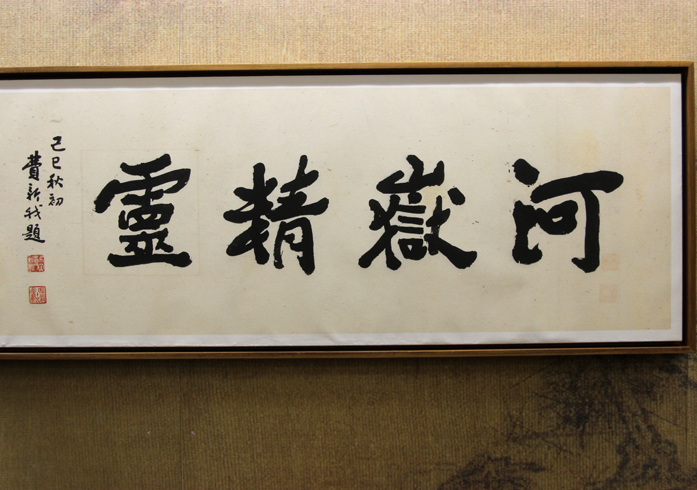 河嶽精靈
己巳秋初
費新我題